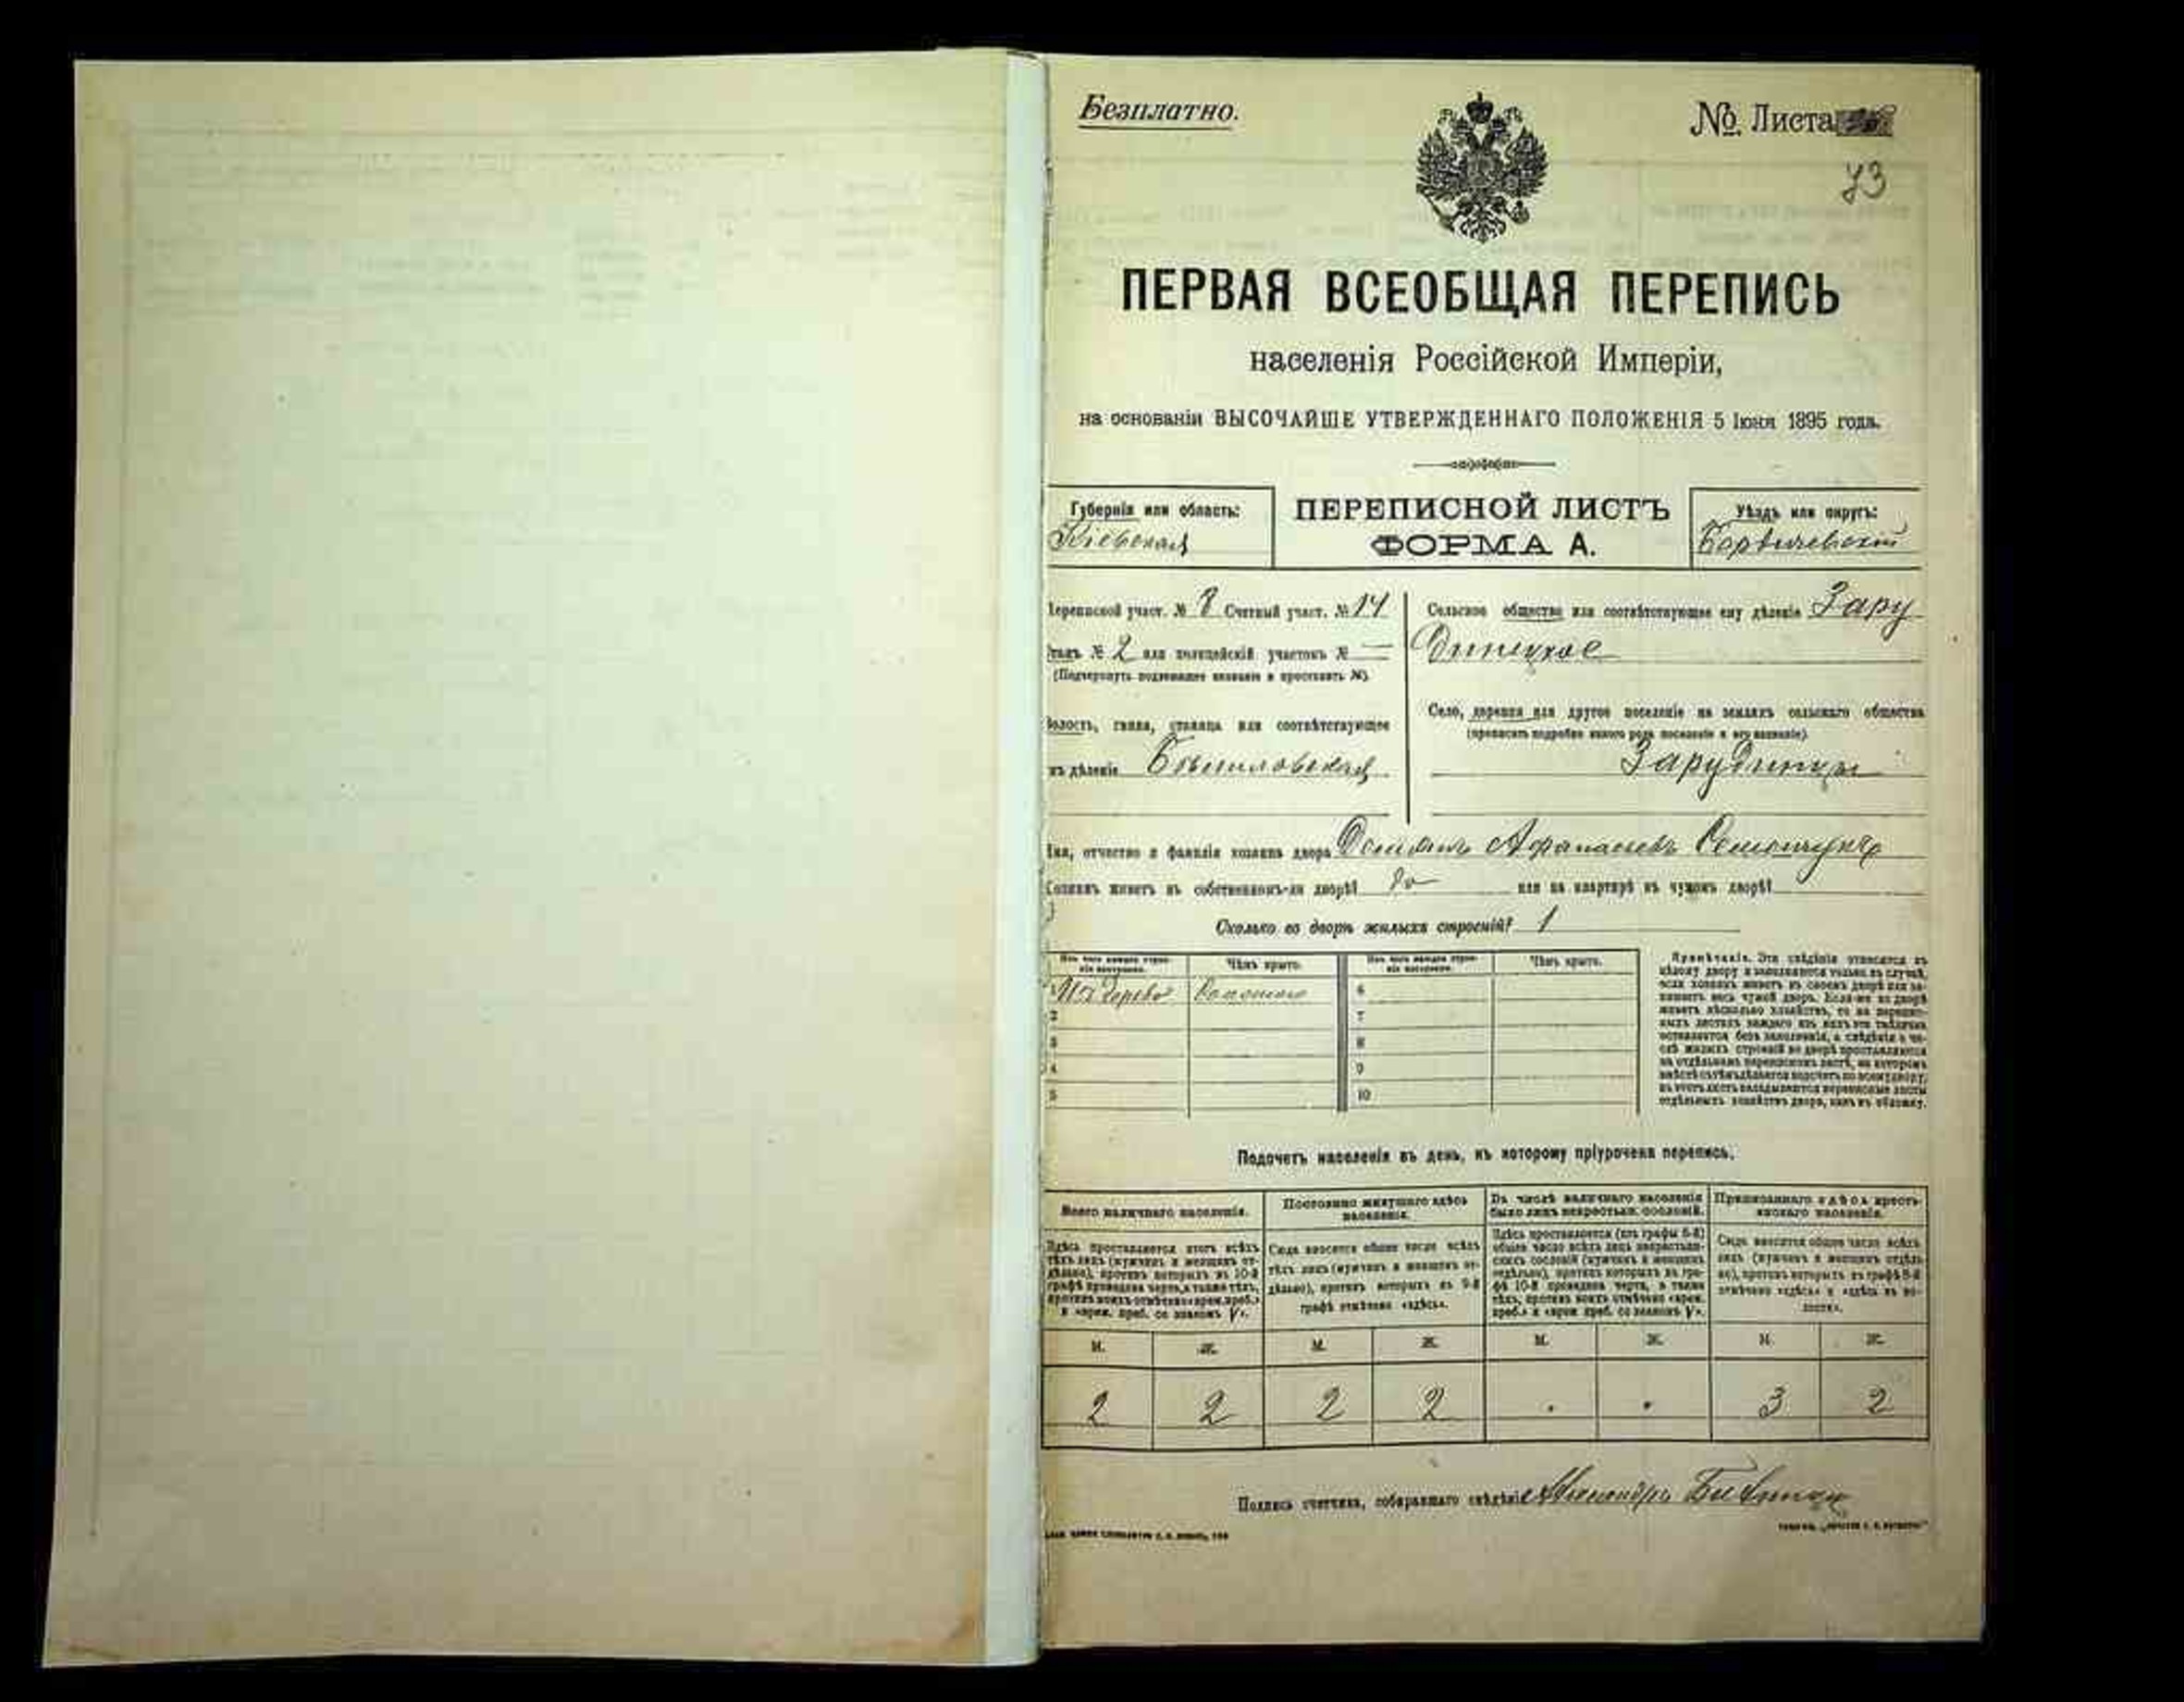 Безплатно.
№ Листа
73
ПЕРВАЯ ВСЕОБЩАЯ ПЕРЕПИСЬ
населенія Россійской Имперіи,
на основаніи ВЫСОЧАЙШЕ УТВЕРЖДЕННАГО ПОЛОЖЕНІЯ 5 Іюня 1895 года.
Губернія или область:
Кіевская
ПЕРЕПИСНОЙ ЛИСТЪ
ФОРМА А.
Уѣздъ или округъ:
Бердичевскій
Переписной участ. № 8 Счетный участ. № 14
Станъ № 2 или полицейскій участокъ № —
(Подчеркнуть подлежащее названіе и проставить №).
Волость, гмина, станица или соотвѣтствующее
имъ дѣленіе
Сельское общество или соотвѣтствующее ему дѣленіе Зару
динецкое
Село, деревня или другое поселеніе на земляхъ сельскаго общества
(прописать подробно какого рода поселеніе и его названіе).
Зарудинцы
Имя, отчество и фамилія хозяина двора
Хозяинъ живетъ въ собственномъ-ли дворѣ? да или на квартирѣ въ чужомъ дворѣ?
Сколько во дворѣ жилыхъ строеній? 1
Изъ чего каждое строеніе построено.
Чѣмъ крыто.
Изъ чего каждое строеніе построено.
Чѣмъ крыто.
Изъ дерева Соломою 6
2 7
3 8
4 9
5 10
Примѣчаніе. Эти свѣдѣнія относятся къ
цѣлому двору и заполняются только въ случаѣ,
если хозяинъ живетъ въ своемъ дворѣ или за-
нимаетъ весь чужой дворъ. Если-же во дворѣ
живетъ нѣсколько хозяйствъ, то на перепис-
ныхъ листахъ каждаго изъ нихъ эти таблички
оставляются безъ заполненія, а свѣдѣнія о чи-
слѣ жилыхъ строеній во дворѣ проставляются
на отдѣльномъ переписномъ листѣ, на которомъ
вмѣстѣ съ тѣмъ дѣлается подсчетъ по всему двору;
въ этотъ листъ вкладываются переписные листы
отдѣльныхъ хозяйствъ двора, какъ въ обложку.
Подсчетъ населенія въ день, къ которому пріурочена перепись.
Всего наличнаго населенія.
Постоянно живущаго здѣсь
населенія.
Въ числѣ наличнаго населенія
было лицъ некрестьян. сословій.
Приписаннаго здѣсь кресть-
янскаго населенія.
Здѣсь проставляется итогъ всѣхъ
тѣхъ лицъ (мужчинъ и женщинъ от-
дѣльно), противъ которыхъ въ 10-й
графѣ проведена черта, а также тѣхъ,
противъ коихъ отмѣчено «врем. преб.»
и «врем. преб. со знакомъ V».
Сюда вносится общее число всѣхъ
тѣхъ лицъ (мужчинъ и женщинъ от-
дѣльно), противъ которыхъ въ 9-й
графѣ отмѣчено «здѣсь».
Здѣсь проставляется (изъ графы 6-й)
общее число всѣхъ лицъ некрестьян-
скихъ сословій (мужчинъ и женщинъ
отдѣльно), противъ которыхъ въ гра-
фѣ 10-й проведена черта, а также
тѣхъ, противъ коихъ отмѣчено «врем.
преб.» и «врем. преб. со знакомъ V».
Сюда вносится общее число всѣхъ
лицъ (мужчинъ и женщинъ отдѣль-
но), противъ которыхъ въ графѣ 8-й
отмѣчено «здѣсь» и «здѣсь въ во-
лости».
М. Ж. М. Ж. М. Ж. М. Ж.
2 2 2 2 . . 3 2
Подпись счетчика, собиравшаго свѣдѣнія Александръ